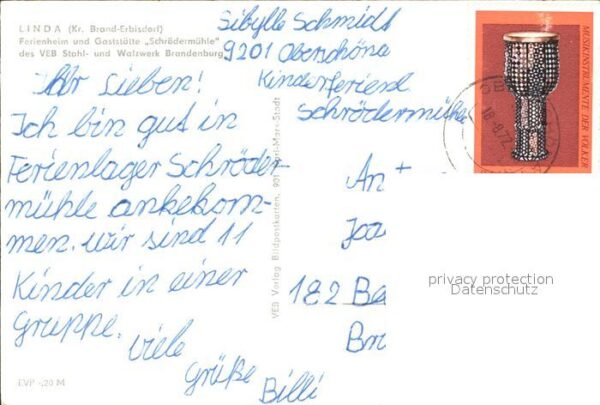 LINDA (Kr. Brand-Erbisdorf)
Ferienheim und Gaststätte „Schrödermühle"
des VEB Stahl- und Walzwerk Brandenburg
Ihr Lieben!
Ich bin gut in
Ferienlager Schröder-
mühle ankekom-
men. Wir sind 11
Kinder in einer
Gruppe.
Viele
Grüße
Billi
EVP -,20 M
VEB Verlag Bildpostkarten, 901 Karl-Marx-Stadt
Sibylle Schmidt
9201 Oberschöna
Kinderferienl
Schrödermühle
MUSIKINSTRUMENTE DER VÖLKER
18.8.72
An
182 Be
Br
privacy protection
Datenschutz